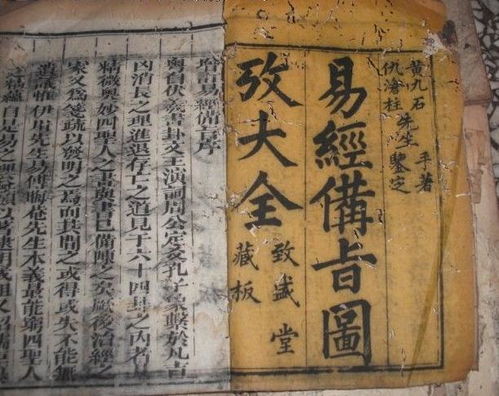 黄九石 手著
仇滄柱先生鑒定
易經備旨圖
攷大全
致盛堂
藏板
易經備旨序
粵自伏羲畫卦文王演周公定爻孔子繫於凡吉
凶消長之理進退存亡之道見于六十四卦之內者其
精微奧妙四聖人之書已備陳之矣厥後治經之
家又為箋疏以發明之為而其間之或得或失不能無
遺議惟伊川先生易傳晦菴先生本義最能窮四聖人
之精蘊自是易之理